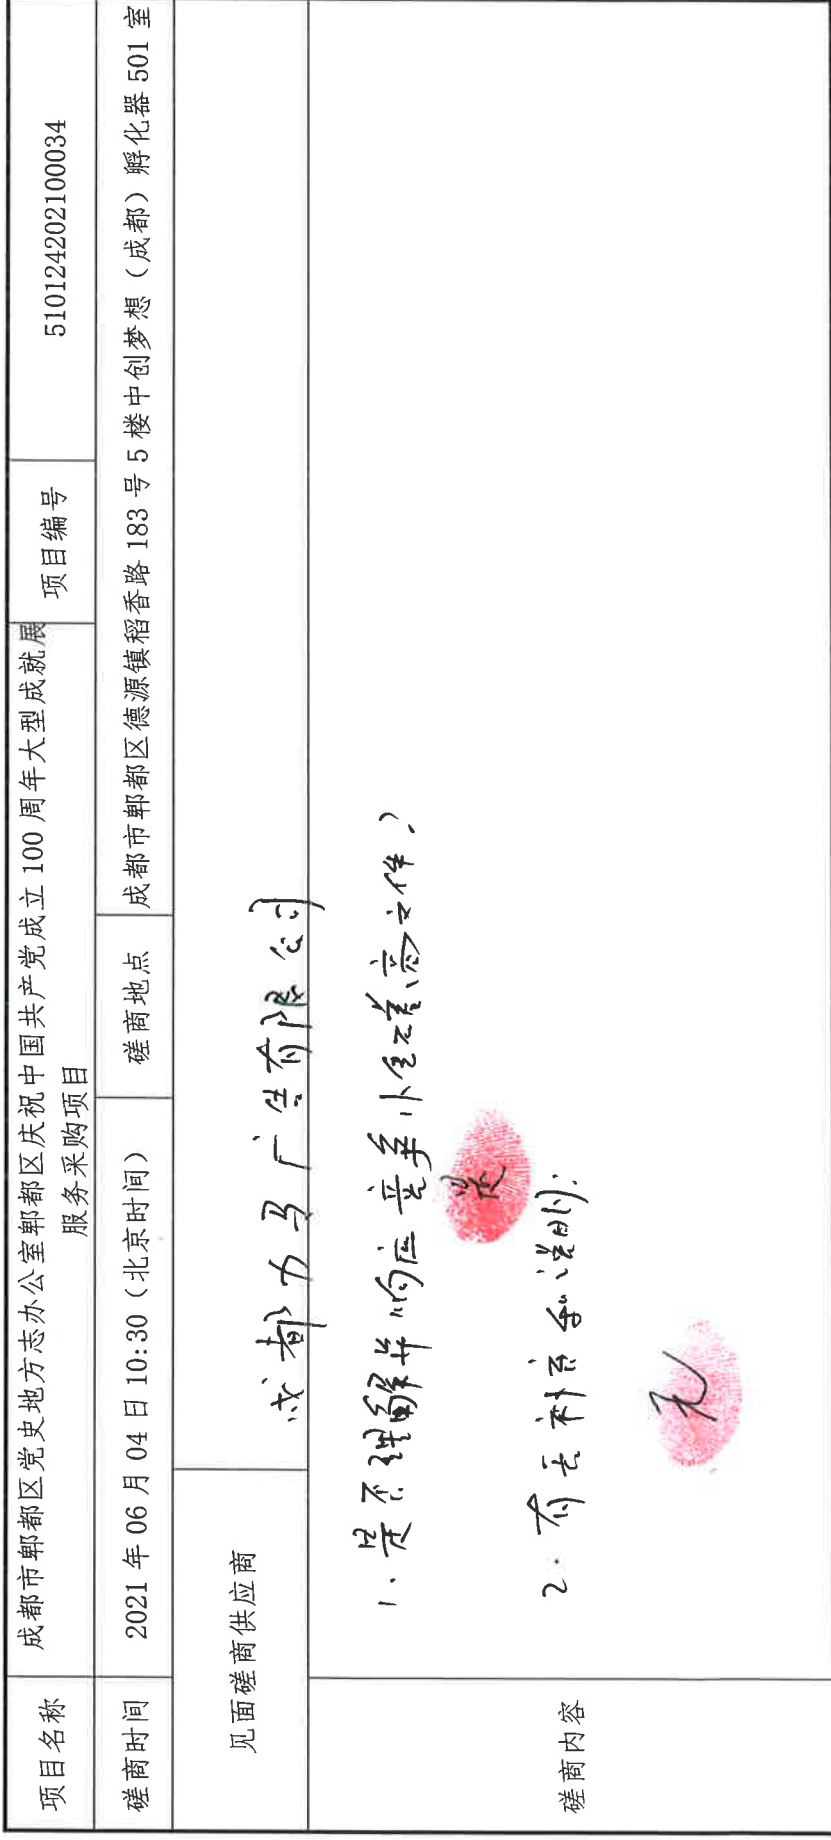 项目名称
成都市郫都区党史地方志办公室郫都区庆祝中国共产党成立 100 周年大型成就展
服务采购项目
项目编号
510124202100034
磋商时间
2021 年 06 月 04 日 10:30（北京时间）
磋商地点
成都市郫都区德源镇稻香路 183 号 5 楼中创梦想（成都）孵化器 501 室
见面磋商供应商
成都力马广告有限公司
磋商内容
1、是否理解并响应竞争性磋商文件？
是
2. 有无补充和说明：
无